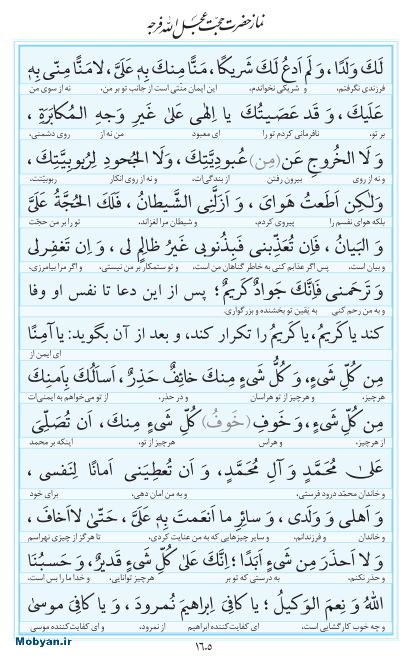 نماز حضرت حجت عجل الله فرجه
لَكَ وَلَدًا، وَ لَم اَدعُ لَكَ شَريكًا، مَنًّا مِنكَ بِهِ عَلَىَّ، لامَنًّا مِنّى بِهِ
فرزندى نگرفتم، و شريكى نخواندم، اين ايمان منتى است از جانب تو بر من. نه از سوى من
عَلَيكَ، وَ قَد عَصَيتُكَ يا اِلٰهى عَلىٰ غَيرِ وَجهِ المُكابَرَةِ ،
بر تو، نافرمانى كردم تو را اى معبود من نه از روى دشمنى،
وَ لَا الخُروجِ عَن (مِن) عُبودِيَّتِكَ، وَلَا الجُحودِ لِرُبوبِيَّتِكَ ،
و نه از روى بيرون رفتن از بندگى‌ات، و نه از روى انكار ربوبيّتت،
وَلٰكِن اَطَعتُ هَواىَ ، وَ اَزَلَّنِى الشَّيطانُ ، فَلَكَ الحُجَّةُ عَلَىَّ
بلكه هواى نفسم را پيروى كردم، و شيطان مرا لغزاند. تو را بر من حجّت
وَ البَيانُ، فَاِن تُعَذِّبنى فَبِذُنوبى غَيرُ ظالِمٍ لى ، وَ اِن تَغفِرلى
و بيان است، پس اگر عذابم كنى به خاطر گناهان من است، و تو ستمكار بر من نيستى. و اگر مرا بيامرزى،
وَ تَرحَمنى فَاِنَّكَ جَوادٌ كَريمٌ ؛ پس از اين دعا تا نفس او وفا
و به من رحم كنى به يقين تو بخشنده و بزرگوارى.
كند يا كَريمُ، يا كَريمُ را تكرار كند، و بعد از آن بگويد: يا آمِنًا
اى ايمن از
مِن كُلِّ شَىءٍ، وَ كُلُّ شَىءٍ مِنكَ خائِفٌ حَذِرٌ، اَسأَلُكَ بِاَمنِكَ
هرچيز. و هرچيز از تو هراسان و در حذر، از تو مى‌خواهم به ايمنى‌ات
مِن كُلِّ شَىءٍ، وَ خَوفِ (خَوفُ) كُلِّ شَىءٍ مِنكَ، اَن تُصَلِّىَ
از هرچيز. و هراس هرچيز از تو. اينكه بر محمد
عَلىٰ مُحَمَّدٍ وَ آلِ مُحَمَّدٍ، وَ اَن تُعطِيَنى اَمانًا لِنَفسى ،
و خاندان محمّد درود فرستى. و به من امان دهى. براى خود
وَ اَهلى وَ وَلَدى ، وَ سائِرِ ما اَنعَمتَ بِهِ عَلَىَّ ، حَتّىٰ لااَخافَ ،
و خاندان و فرزندانم، و ساير چيزهايى كه به من عنايت كردى. تا هرگز از چيزى نهراسم
وَ لا اَحذَرَ مِن شَىءٍ اَبَدًا ؛ اِنَّكَ عَلىٰ كُلِّ شَىءٍ قَديرٌ، وَ حَسبُنَا
و حذر نكنم. به درستى كه تو بر هرچيز توانايى. و خدا ما را بس است.
اللهُ وَ نِعمَ الوَكيلُ ؛ يا كافِىَ اِبراهيمَ نُمرودَ ، وَ يا كافِىَ موسىٰ
و چه خوب كارگشايى است. اى كفايت‌كننده ابراهيم از نمرود. و اى كفايت‌كننده موسى
١٦٠٥
Mobyan.ir